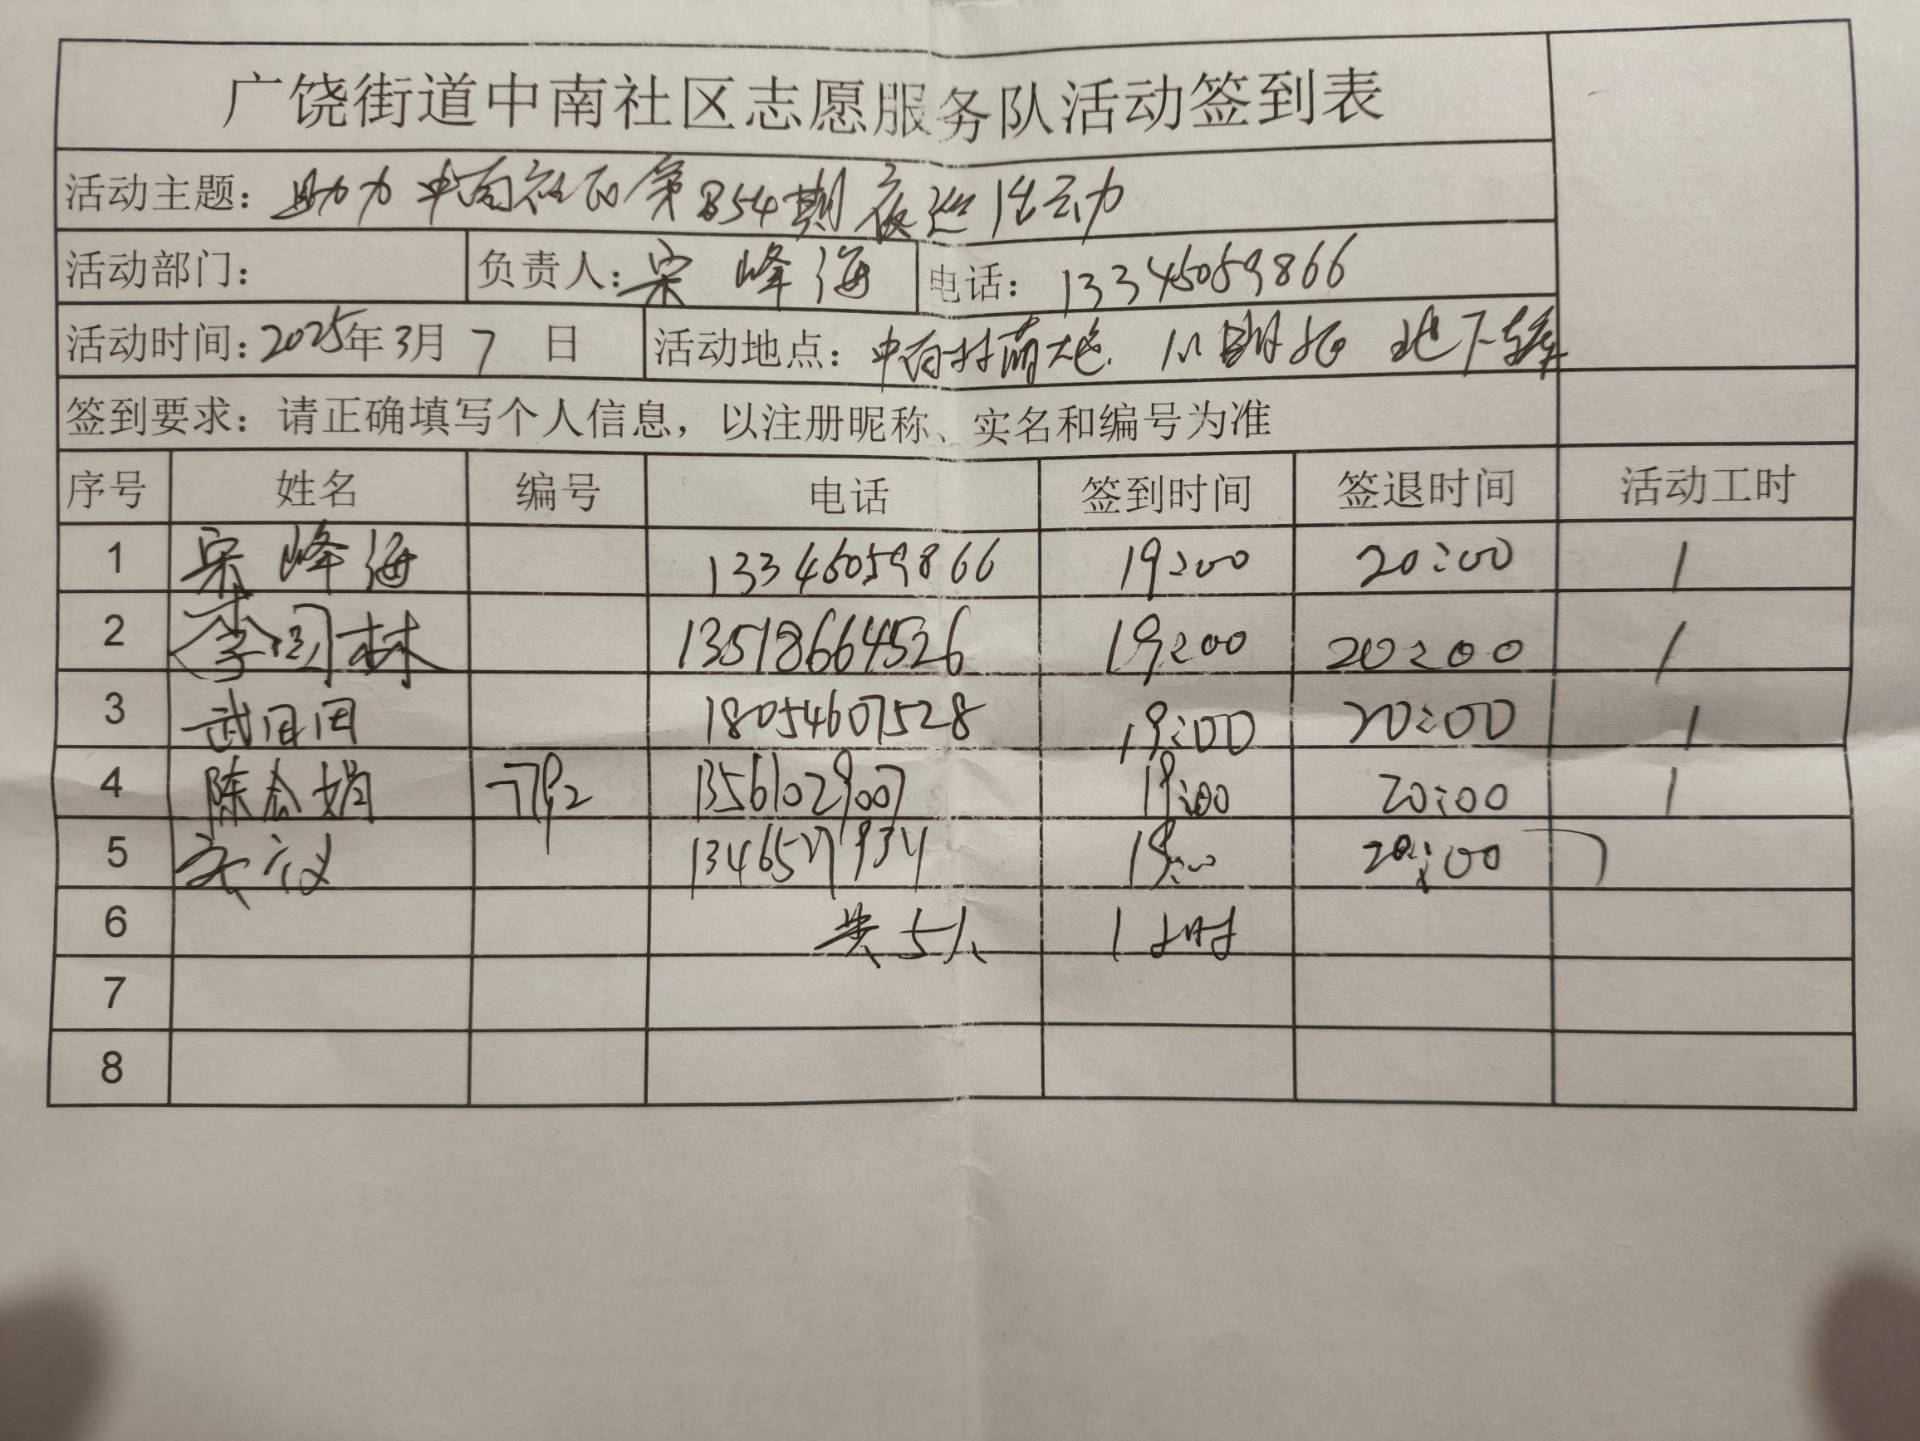 广饶街道中南社区志愿服务队活动签到表
活动主题：助力中南社区第854期夜巡活动
活动部门： 负责人：宋峰海 电话：13345059866
活动时间：2025年3月7日 活动地点：中南 地下车库
签到要求：请正确填写个人信息，以注册昵称、实名和编号为准
序号 姓名 编号 电话 签到时间 签退时间 活动工时
1 宋峰海 13346059866 19:00 20:00 1
2 李国林 13518664526 19:00 20:00 1
3 18054607528 19:00 20:00 1
4 陈 娟 792 13561029007 19:00 20:00 1
5 19:00 20:00 1
6 共5人 1小时
7
8